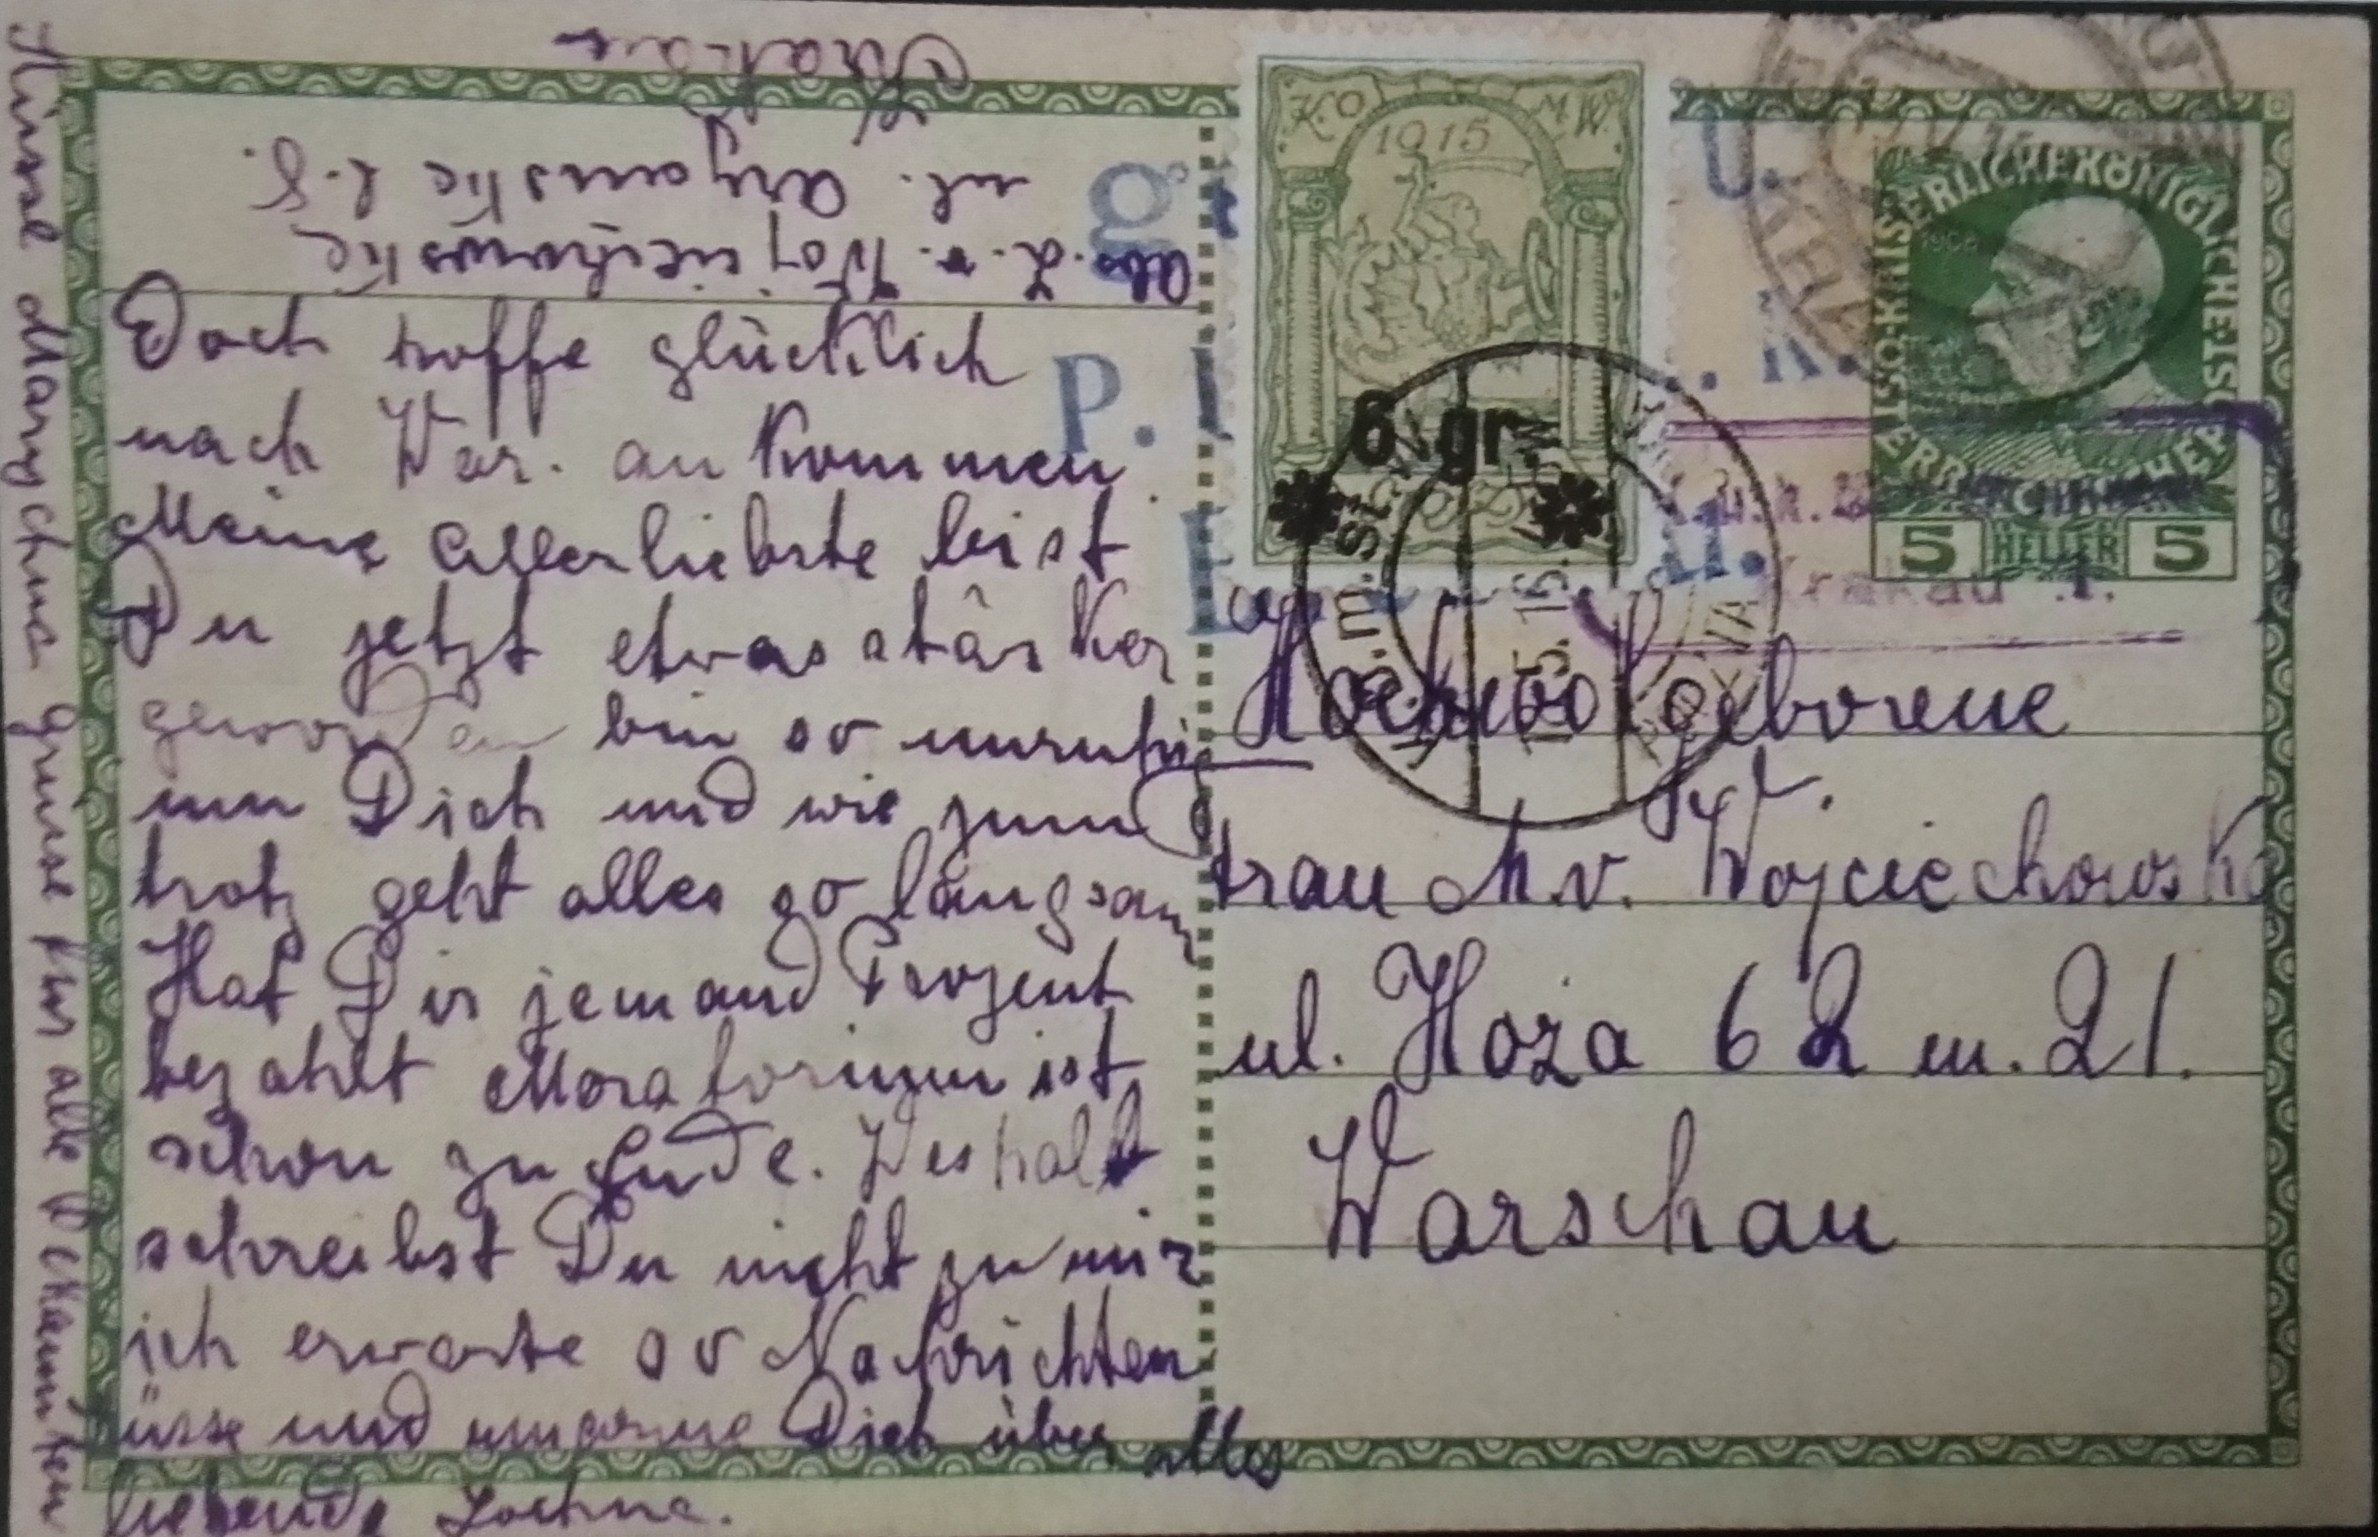 Abs. L. v. Wojciechowski
ul. Aryanskie l. 8.
Krakau
Doch hoffe glücklich
nach War. an kommen
Meine Allerliebste bist
Du jetzt etwas stärker
geworden bin so unruhig
um Dich und wie zum
trotz geht alles so langsam
Hat Dir jemand Prozent
bezahlt Moratorium ist
schon zu Ende. Weshalb
schreibst Du nicht zu mir
ich erwarte so Nachrichten
küsse und umarme Dich über alles
liebende
Küsse Marychna grüsse für alle Bekannten
K.O. M.W.
1915
6 gr
K.O.m.St.W.
15.15.
KAISERLICHE KÖNIGLICHE ÖSTERREICHISCHE
1908
5 HELLER 5
Krakau 1.
Hochwohlgeborene
Frau M. v. Wojciechowska
ul. Hoża 62 m. 21.
Warschau